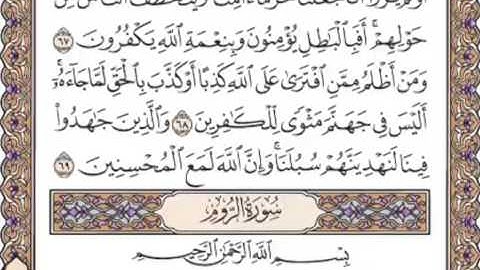 أَوَلَمْ يَرَوْا۟ أَنَّا جَعَلْنَا حَرَمًا ءَامِنًا وَيُتَخَطَّفُ ٱلنَّاسُ مِنْ
حَوْلِهِمْ ۚ أَفَبِٱلْبَٰطِلِ يُؤْمِنُونَ وَبِنِعْمَةِ ٱللَّهِ يَكْفُرُونَ ٦٧
وَمَنْ أَظْلَمُ مِمَّنِ ٱفْتَرَىٰ عَلَى ٱللَّهِ كَذِبًا أَوْ كَذَّبَ بِٱلْحَقِّ لَمَّا جَآءَهُۥٓ ۚ
أَلَيْسَ فِى جَهَنَّمَ مَثْوًى لِّلْكَٰفِرِينَ ٦٨ وَٱلَّذِينَ جَٰهَدُوا۟
فِينَا لَنَهْدِيَنَّهُمْ سُبُلَنَا ۚ وَإِنَّ ٱللَّهَ لَمَعَ ٱلْمُحْسِنِينَ ٦٩
سُورَةُ الرُّومِ
بِسْمِ ٱللَّهِ ٱلرَّحْمَٰنِ ٱلرَّحِيمِ